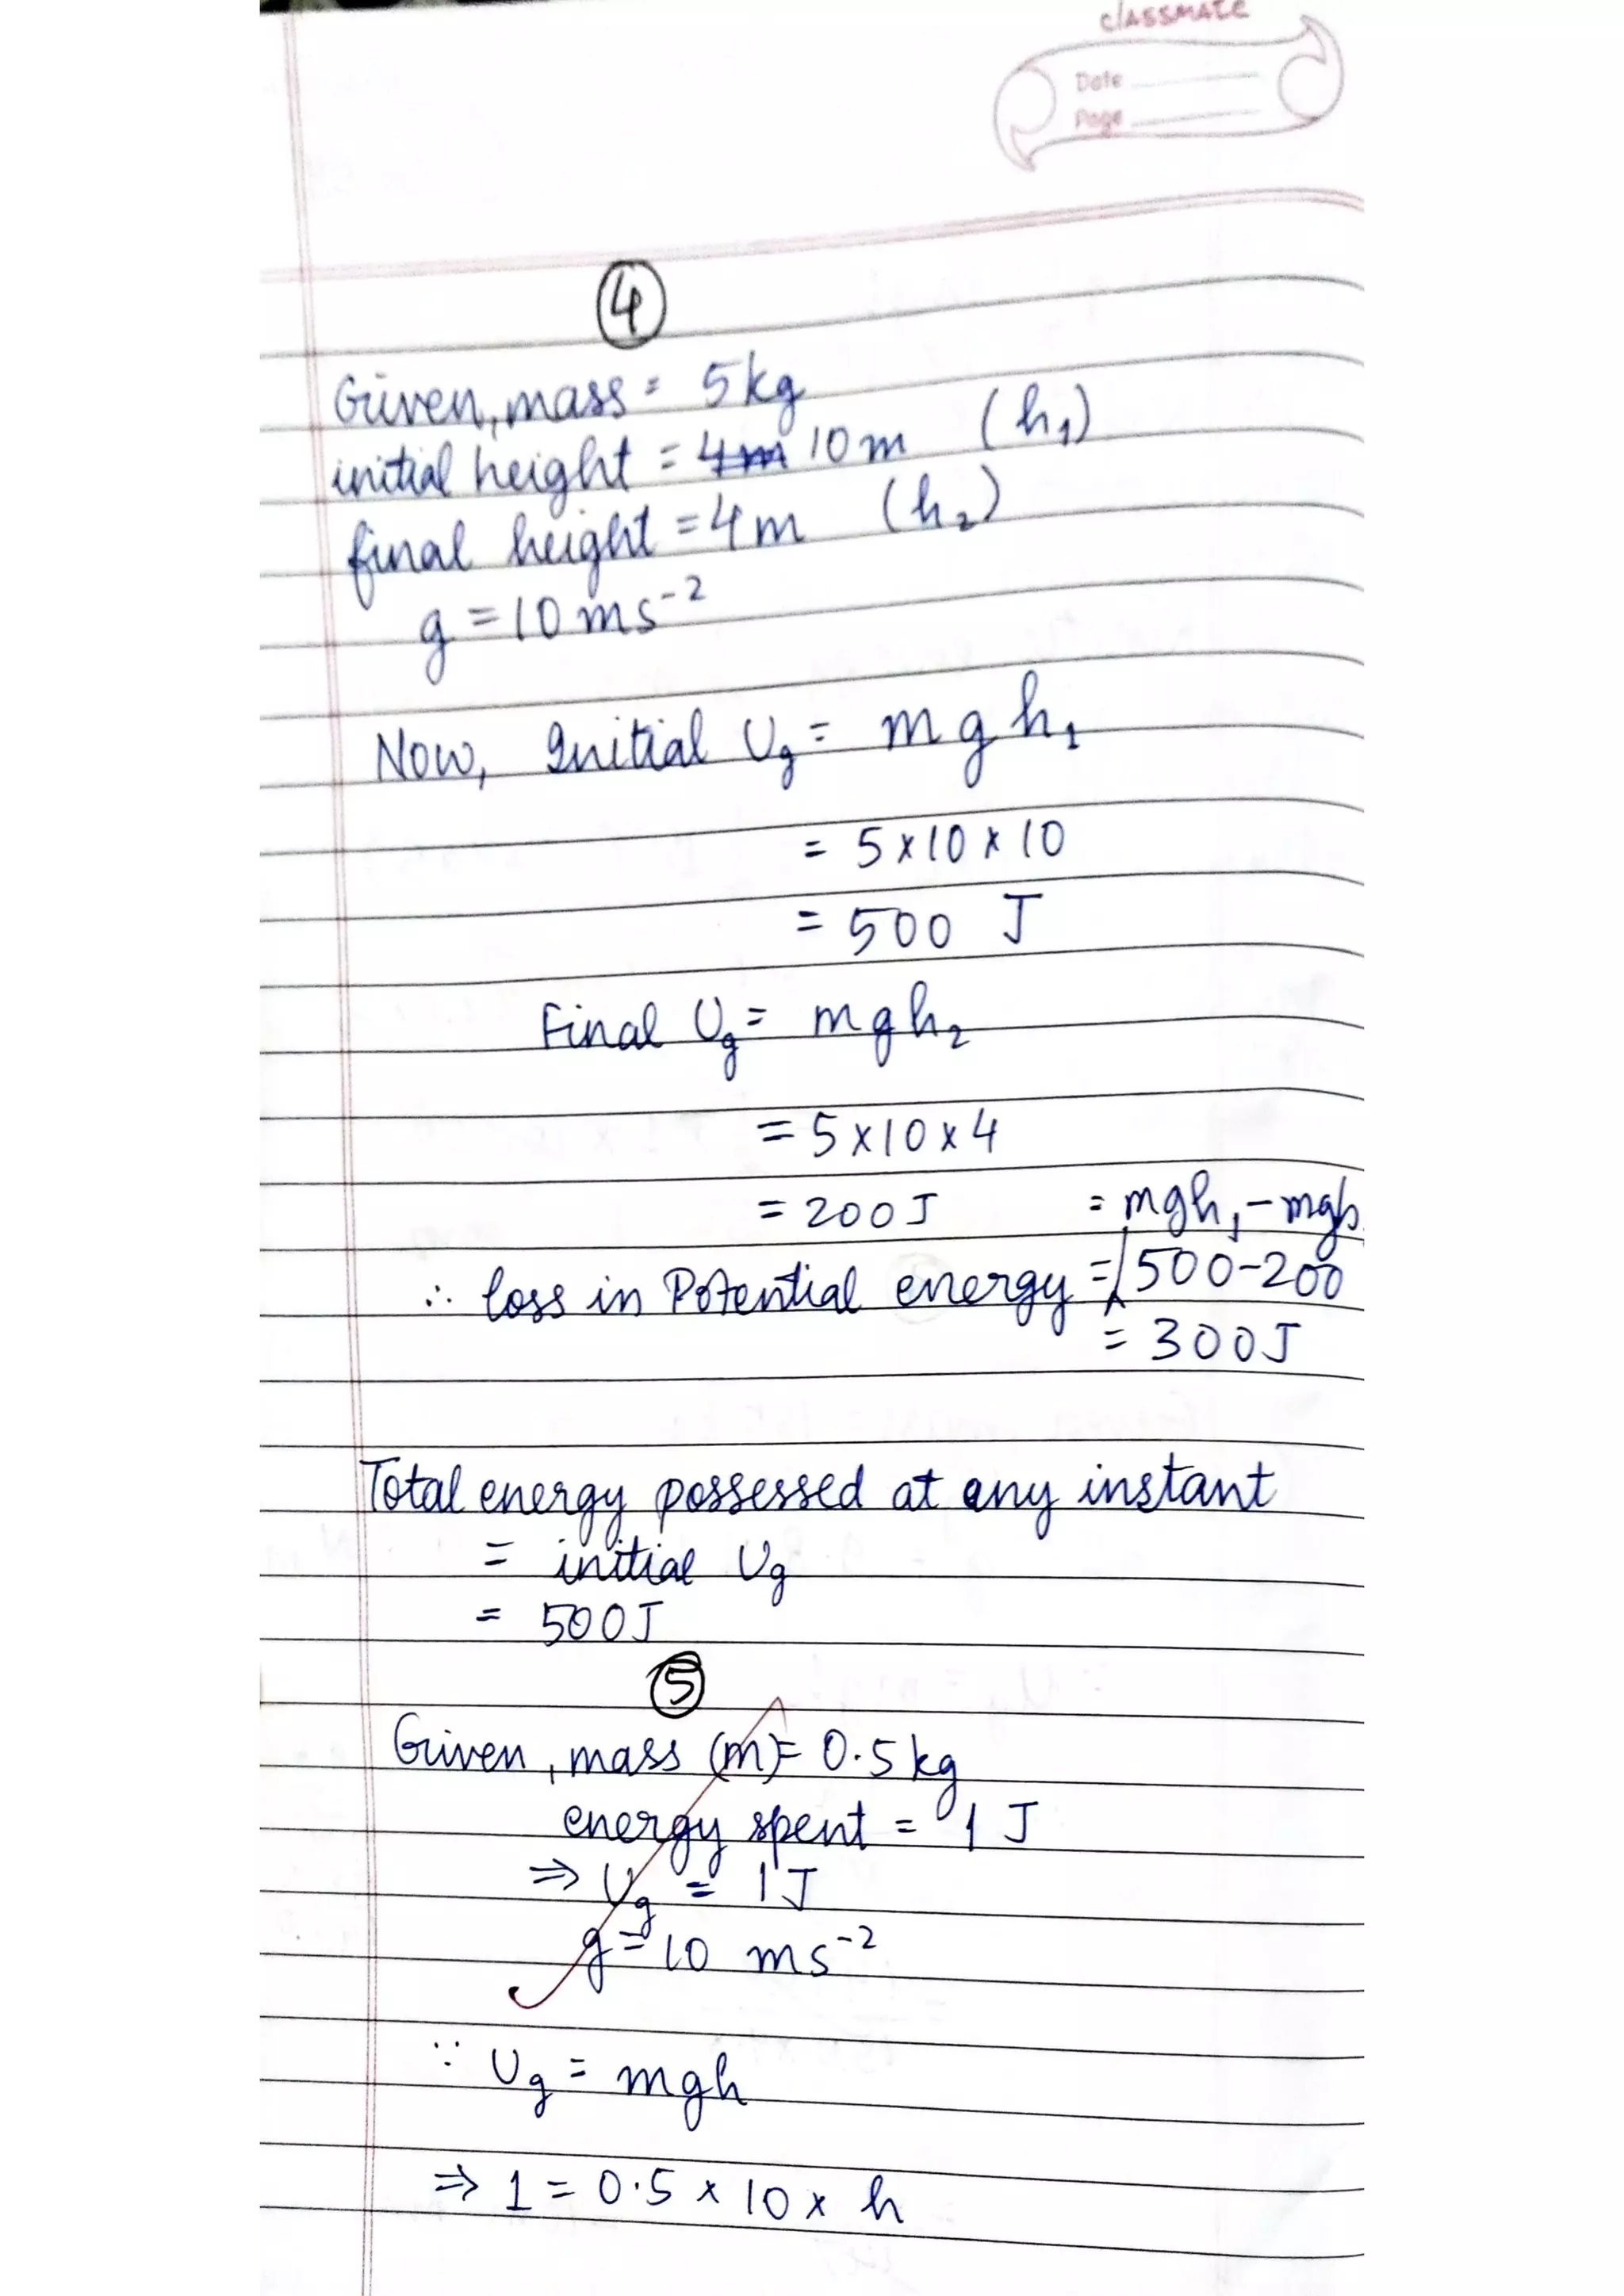 classmate
Date
Page
4
Given, mass = 5kg
initial height = 4m 10m (h₁)
final height = 4m (h₂)
g = 10 ms⁻²
Now, Initial Ug = mgh₁
= 5 x 10 x 10
= 500 J
Final Ug = mgh₂
= 5 x 10 x 4
= 200J = mgh₁ - mgh
∴ loss in Potential energy = 500-200
= 300J
Total energy possessed at any instant
= initial Ug
= 500J
5
Given, mass (m) = 0.5 kg
energy spent = 1 J
⇒ Ug = 1J
g = 10 ms⁻²
∵ Ug = mgh
⇒ 1 = 0.5 x 10 x h